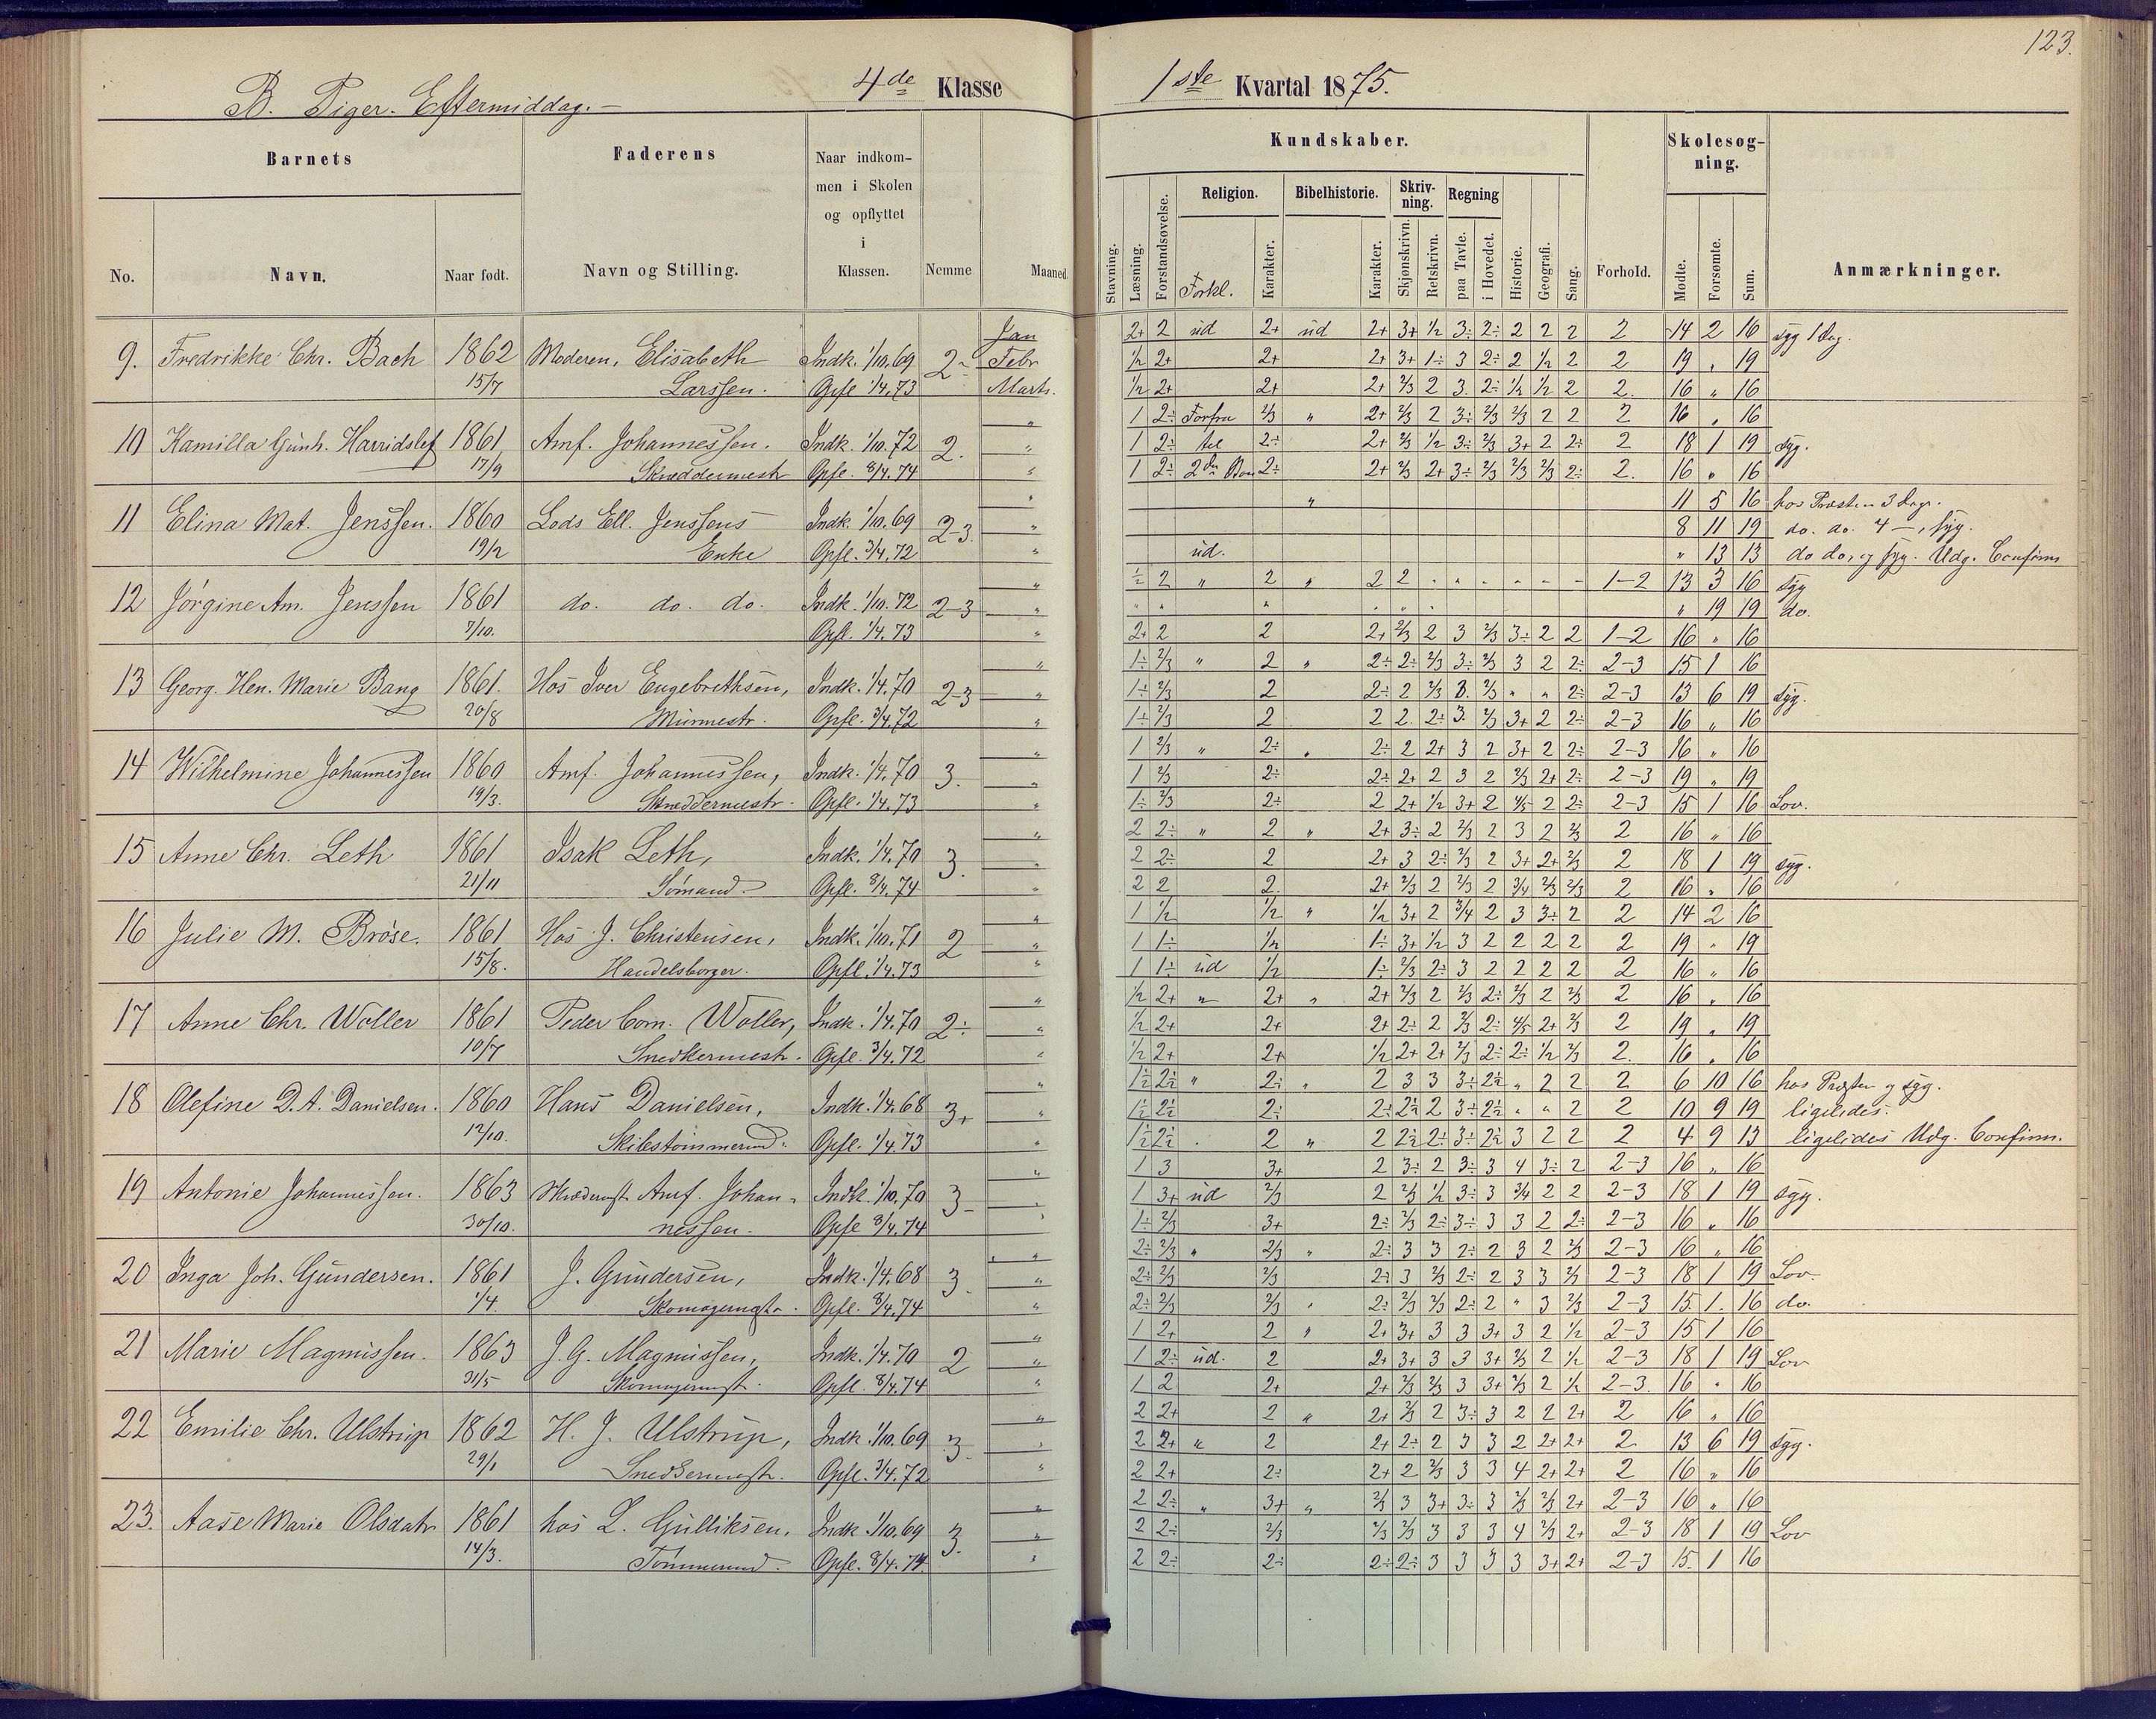 123.
B. Piger. Eftermiddag. 4de Klasse 1ste Kvartal 1875.
Barnets Faderens Naar indkom-
men i Skolen
og opflyttet
i
Klassen. Nemme Maaned.
No. Navn. Naar født. Navn og Stilling.
Kundskaber. Skolesøg-
ning.
Religion. Bibelhistorie. Skriv-
ning. Regning
Stavning. Læsning. Forstandsøvelse. Forkl. Karakter. Karakter. Skjønskrivn. Retskrivn. paa Tavle. i Hovedet. Historie. Geografi. Sang. Forhold. Mødte. Forsømte. Sum. Anmærkninger.
Jan 2+ 2 ud 2+ ud 2+ 3+ 1/2 3÷ 2÷ 2 2 2 2 14 2 16 syg 1 Dag.
9. Fredrikke Chr. Bach 1862 Moderen, Elisabeth Indk. 1/10.69 2÷ Febr 1/2 2+ 2+ 2+ 3+ 1÷ 3 2÷ 2 1/2 2 2 19 „ 19
15/7 Larssen. Opfl 1/4.73 Marts. 1/2 2+ 2+ 2+ 2/3 2 3. 2÷ 1/2 1/2 2 2. 16 „ 16
„ 1 2÷ Forfra 2/3 „ 2+ 2/3 2 3÷ 2/3 2/3 2 2 2 16 „ 16
10 Kamilla Gunh. Harridslef 1861 Amf. Johannessen. Indk. 1/10.72 2. „ 1 2÷ til 2÷ 2+ 2/3 1/2 3÷ 2/3 3+ 2 2÷ 2 18 1 19 syg.
17/9 Skræddermestr Opfl. 8/4.74 „ 1 2÷ 2den 2÷ 2+ 2/3 2+ 3÷ 2/3 2/3 2/3 2÷ 2. 16 „ 16
„ „ 11 5 16 hos Præsten 3 Dage.
11 Elina Mat. Jenssen. 1860 Lods Ell. Jenssens Indk. 1/10.69 2-3. „ 8 11 19 do. do. 4 —, syg.
19/2 Enke Opfl. 3/4.72 „ ud. „ 13 13 do do, og syg. Udg. Confirm
„ 1/2 2 „ 2 „ 2 2 „ „ „ „ „ „ 1-2 13 3 16 syg
12 Jörgine Am. Jenssen 1861 do. do. do. Indk. 1/10.72 2-3 „ „ „ „ „ „ „ „ 19 19 do.
7/10. Opfl. 1/4.73 „ 2+ 2 2 2+ 2/3 2 3 2/3 3÷ 2 2 1-2 16 „ 16
„ 1÷ 2/3 „ 2 „ 2÷ 2÷ 2/3 3÷ 2/3 3 2 2÷ 2-3 15 1 16
13 Georg. Hen. Marie Bang 1861. Hos Iver Engebrethsen, Indk. 1/4.70 2-3 „ 1÷ 2/3 2 2÷ 2 2/3 3. 2/3 „ „ 2÷ 2-3 13 6 19 syg.
20/8 Murmestr. Opfl. 3/4.72 „ 1÷ 2/3 2 2 2. 2÷ 3. 2/3 3+ 2 2÷ 2-3 16 „ 16
„ 1 2/3 „ 2÷ „ 2÷ 2 2+ 3 2 3+ 2 2÷ 2-3 16 „ 16
14 Wilhelmine Johannessen 1860 Amf. Johannessen, Indk. 1/4.70 3. „ 1 2/3 2÷ 2÷ 2+ 2 3 2 2/3 2+ 2÷ 2-3 19 „ 19
19/3. Skræddermestr. Opfl. 1/4.73 „ 1÷ 2/3 2÷ 2 2+ 1/2 3+ 2 4/5 2 2÷ 2-3 15 1 16 Lov.
„ 2 2÷ „ 2 „ 2+ 3÷ 2 2/3 2 3 2 2/3 2 16 „ 16
15 Anne Chr. Leth 1861 Isak Leth, Indk. 1/4.70 3. „ 2 2÷ 2 2+ 3 2÷ 2/3 2 3+ 2+ 2/3 2 18 1 19 syg.
21/11 Sömand. Opfl. 8/4.74 „ 2 2 2. 2+ 2/3 2 2/3 2 3/4 2/3 2/3 2 16 „ 16
„ 1 1/2 1/2 „ 1/2 3+ 2 3/4 2 3 3÷ 2 2 14 2 16
16 Julie M. Bröse. 1861 Hos J. Christensen, Indk. 1/10.71 2 „ 1 1÷ 1/2 1÷ 3+ 1/2 3 2 2 2 2 2 19 „ 19
15/8. Handelsborger. Opfl. 1/4.73 „ 1 1÷ ud 1/2 1÷ 2/3 2÷ 3 2 2 2 2 2 16 „ 16
„ 1/2 2+ „ 2+ „ 2+ 2/3 2 2/3 2÷ 2/3 2 2/3 2 16 „ 16
17 Anne Chr. Woller 1861 Peder Corn. Woller, Indk. 1/4.70 2÷ „ 1/2 2+ 2+ 2+ 2÷ 2 2/3 2÷ 4/5 2+ 2/3 2 19 „ 19
10/7 Snedkermestr. Opfl. 3/4.72 „ 1/2 2+ 2+ 1/2 2+ 2+ 2/3 2÷ 2÷ 1/2 2/3 2. 16 „ 16
„ 1 1/2 2 1/2 „ 2÷ „ 2 3 3 3÷ 2 1/2 „ 2 2 2 6 10 16 hos Præsten og syg.
18 Olefine D.A. Danielsen. 1860 Hans Danielsen, Indk. 1/4.68 3+ „ 1 1/2 2 1/2 2÷ 2÷ 2 1/2 2 3÷ 2 1/2 „ „ 2 2 10 9 19 ligeledes.
12/10. Skibstömmermd. Opfl. 1/4.73 „ 1 1/2 2 1/2 . 2 „ 2 2 1/2 2÷ 3÷ 2 1/2 3 2 2 2 4 9 13 ligeledes Udg. Confirm.
„ 1 3 3+ 2 3÷ 2 3÷ 3 4 3÷ 2 2-3 16 „ 16
19 Antonie Johannessen. 1863 Skrædermstr. Amf. Johan- Indk. 1/10.70 3- „ 1 3+ ud 2/3 2 2/3 1/2 3÷ 3 3/4 2 2 2-3 18 1 19 syg.
30/10. nessen. Opfl 8/4.74 „ 1÷ 2/3 3+ 2÷ 2/3 2÷ 3÷ 3 3 2 2÷ 2-3 16 „ 16
„ 2÷ 2/3 „ 2/3 „ 2÷ 3 3 2÷ 2 3 2 2/3 2-3 16 „ 16
20 Inga Joh. Gundersen. 1861 J. Gundersen, Indk. 1/4.68 3. „ 2÷ 2/3 2/3 2÷ 3 2/3 2÷ 2 3 3 2/3 2-3 18 1 19 Lov.
1/4. Skomagermstr. Opfl. 8/4.74 „ 2÷ 2/3 2/3 „ 2÷ 2/3 2/3 2÷ 2 „ 3 2/3 2-3 15. 1. 16 do.
„ 1 2+ 2 „ 2+ 3+ 3 3 3+ 3 2 1/2 2-3 15 1 16
21 Marie Magnussen. 1863 J.G. Magnussen, Indk. 1/4.70 2 „ 1 2÷ ud. 2 2+ 3+ 3 3 3+ 2/3 2 1/2 2-3 18 1 19 Lov
31/5 Skomagermstr. Opfl. 8/4.74 „ 1 2 2+ 2+ 2/3 2/3 3 3+ 2/3 2 1/2 2-3. 16 „ 16
„ 2 2+ 2 „ 2+ 2/3 2 3÷ 3 2 2 2+ 2 16 „ 16
22 Emilie Chr. Ulstrup 1862 H. J. Ulstrup, Indk. 1/10.69 3- „ 2 2+ „ 2 2+ 2÷ 2 3 3 2 2+ 2+ 2 13 6 19 syg.
29/1 Snedkermestr. Opfl. 3/4.72 „ 2 2+ 2÷ 2+ 2 2/3 3 3 4 2+ 2+ 2 16 „ 16
„ 2 2÷ „ 3+ „ 2/3 3 3+ 3÷ 3 2/3 2/3 2+ 2-3 16 „ 16
23. Aase Marie Olsdatr 1861 hos L. Gulliksen, Indk. 1/10.69 3. „ 2 2÷ 2/3 2/3 2/3 3 3 3 4 2/3 2+ 2-3 18 1 19 Lov
14/3. Tömmermd. Opfl. 8/4.74. „ 2 2÷ 2÷ 2÷ 2÷ 3 3 3 3 3+ 2+ 2-3 15. 1 16